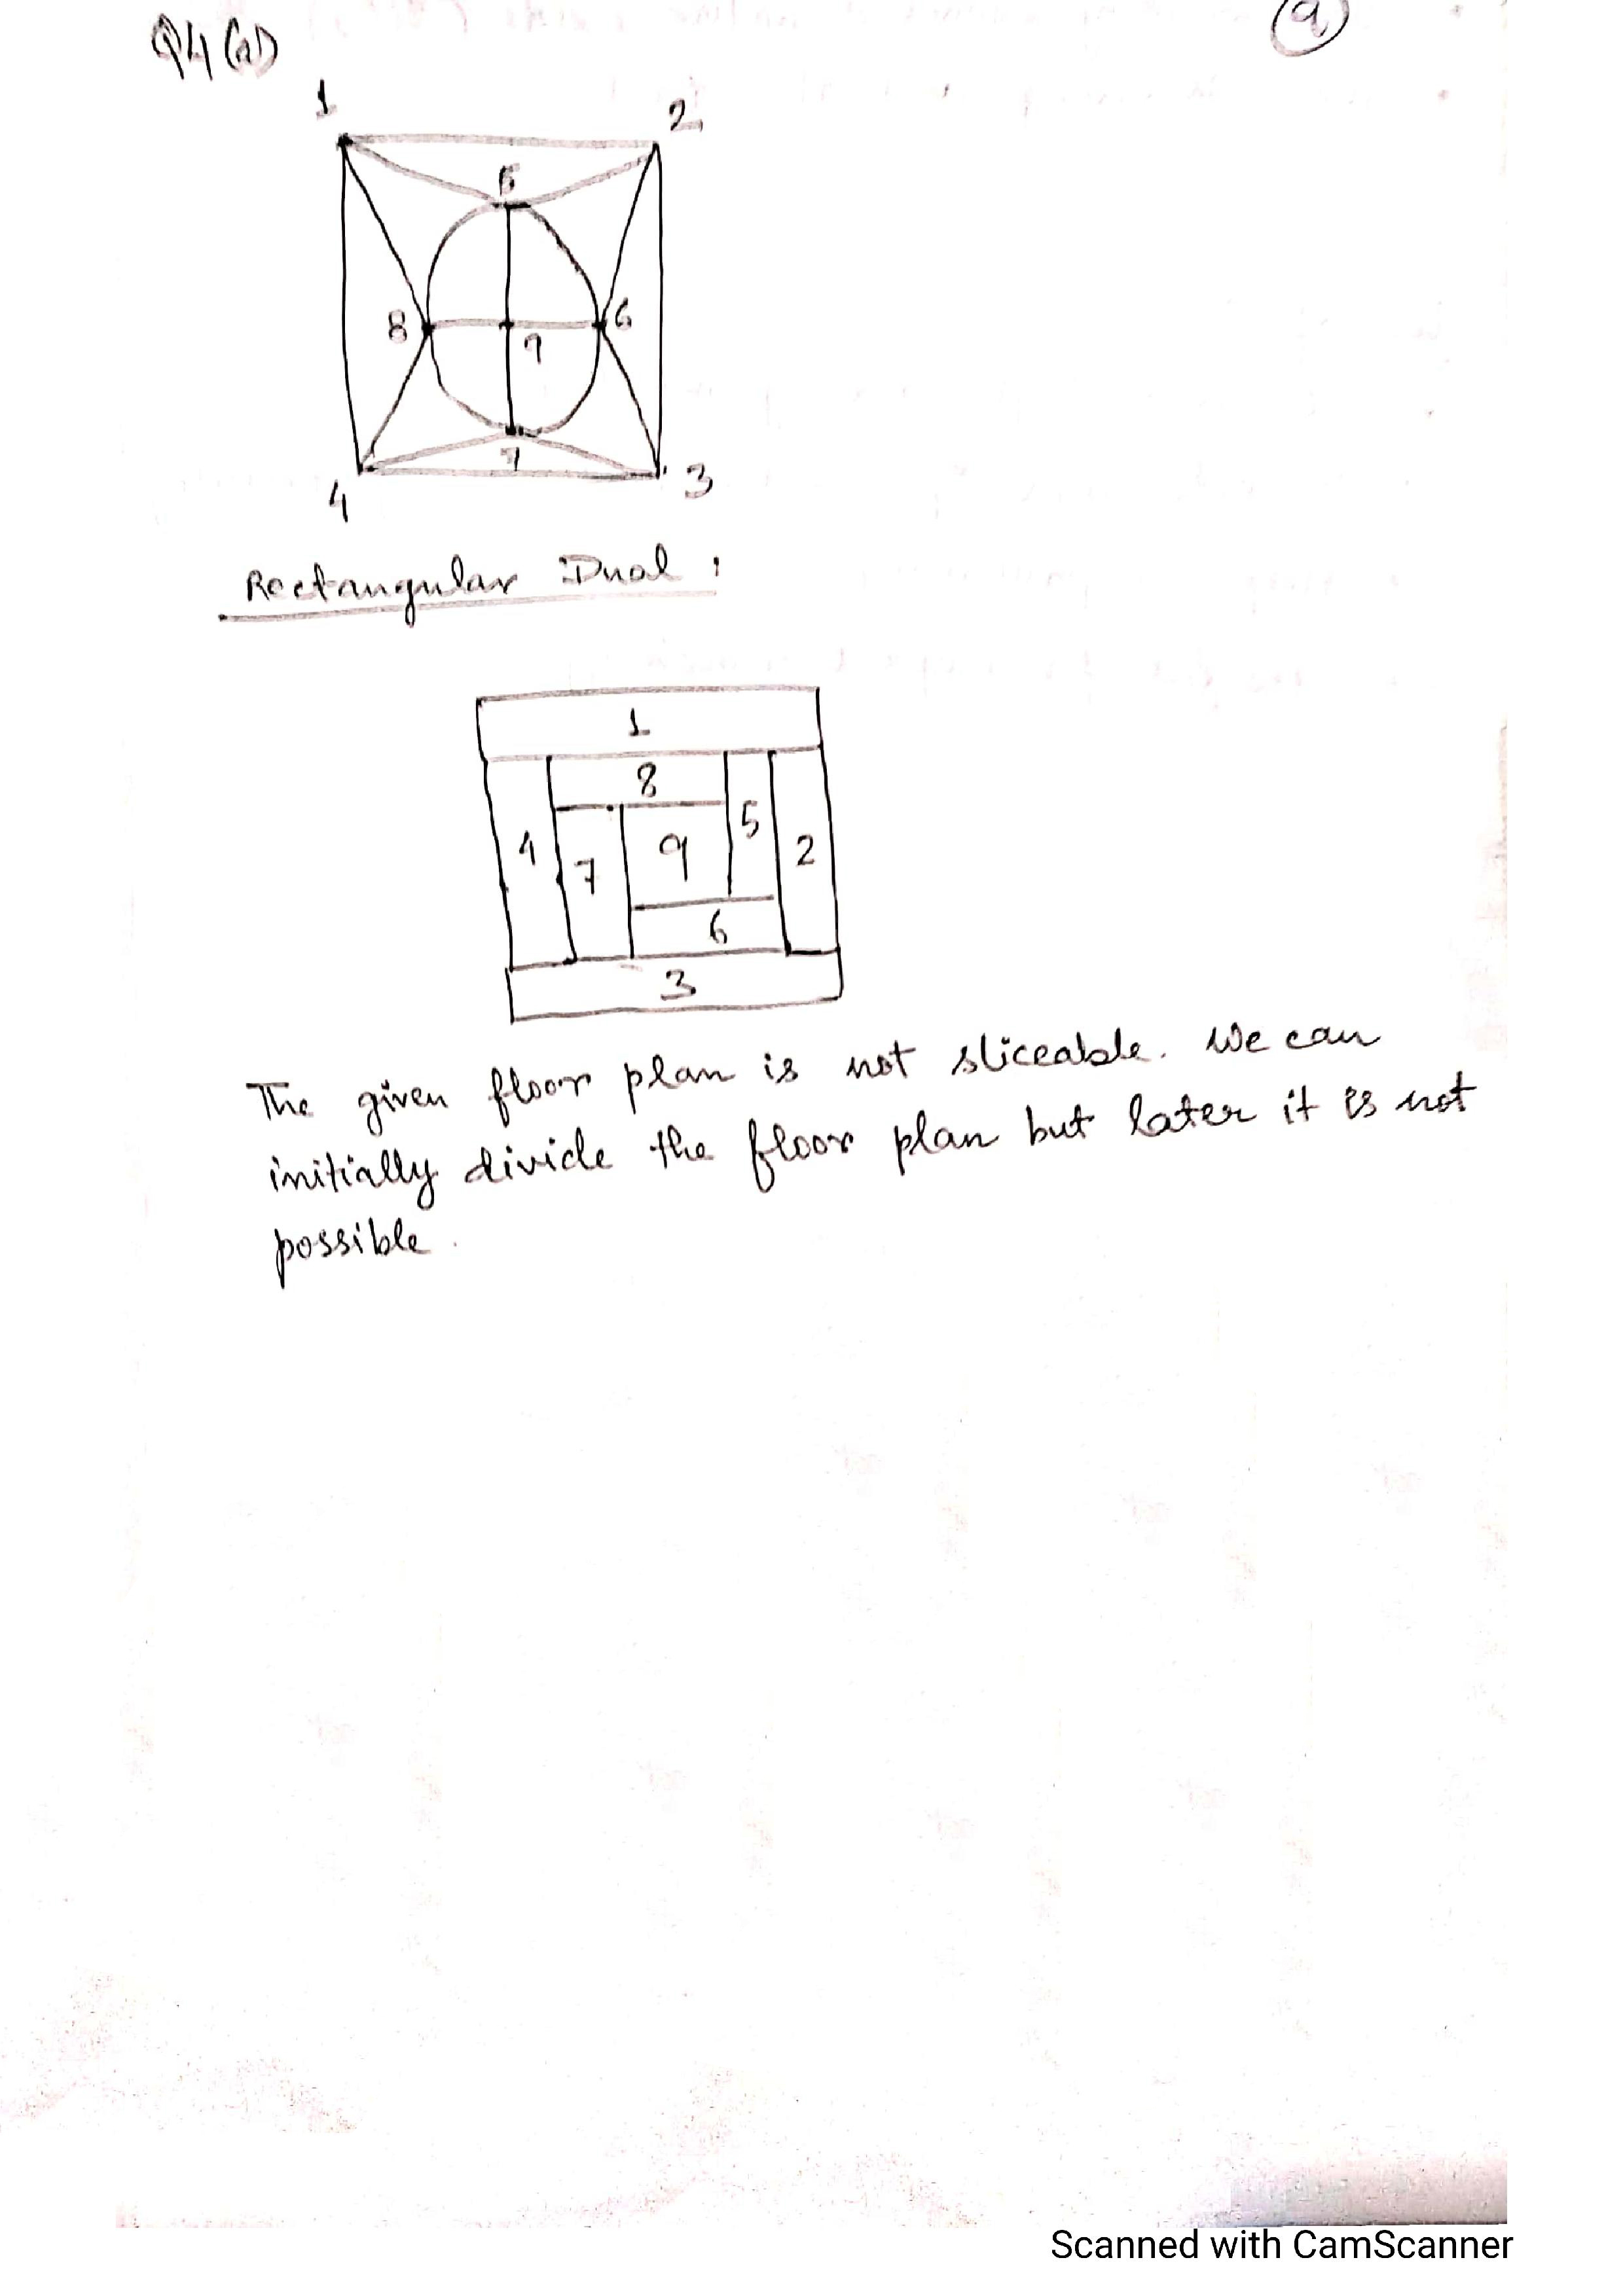 Q4(a)
9
1
2
5
8
6
9
7
4
3
Rectangular Dual :
1
8
5
4
9
2
7
6
3
The given floor plan is not sliceable. We can
initially divide the floor plan but later it is not
possible.
Scanned with CamScanner